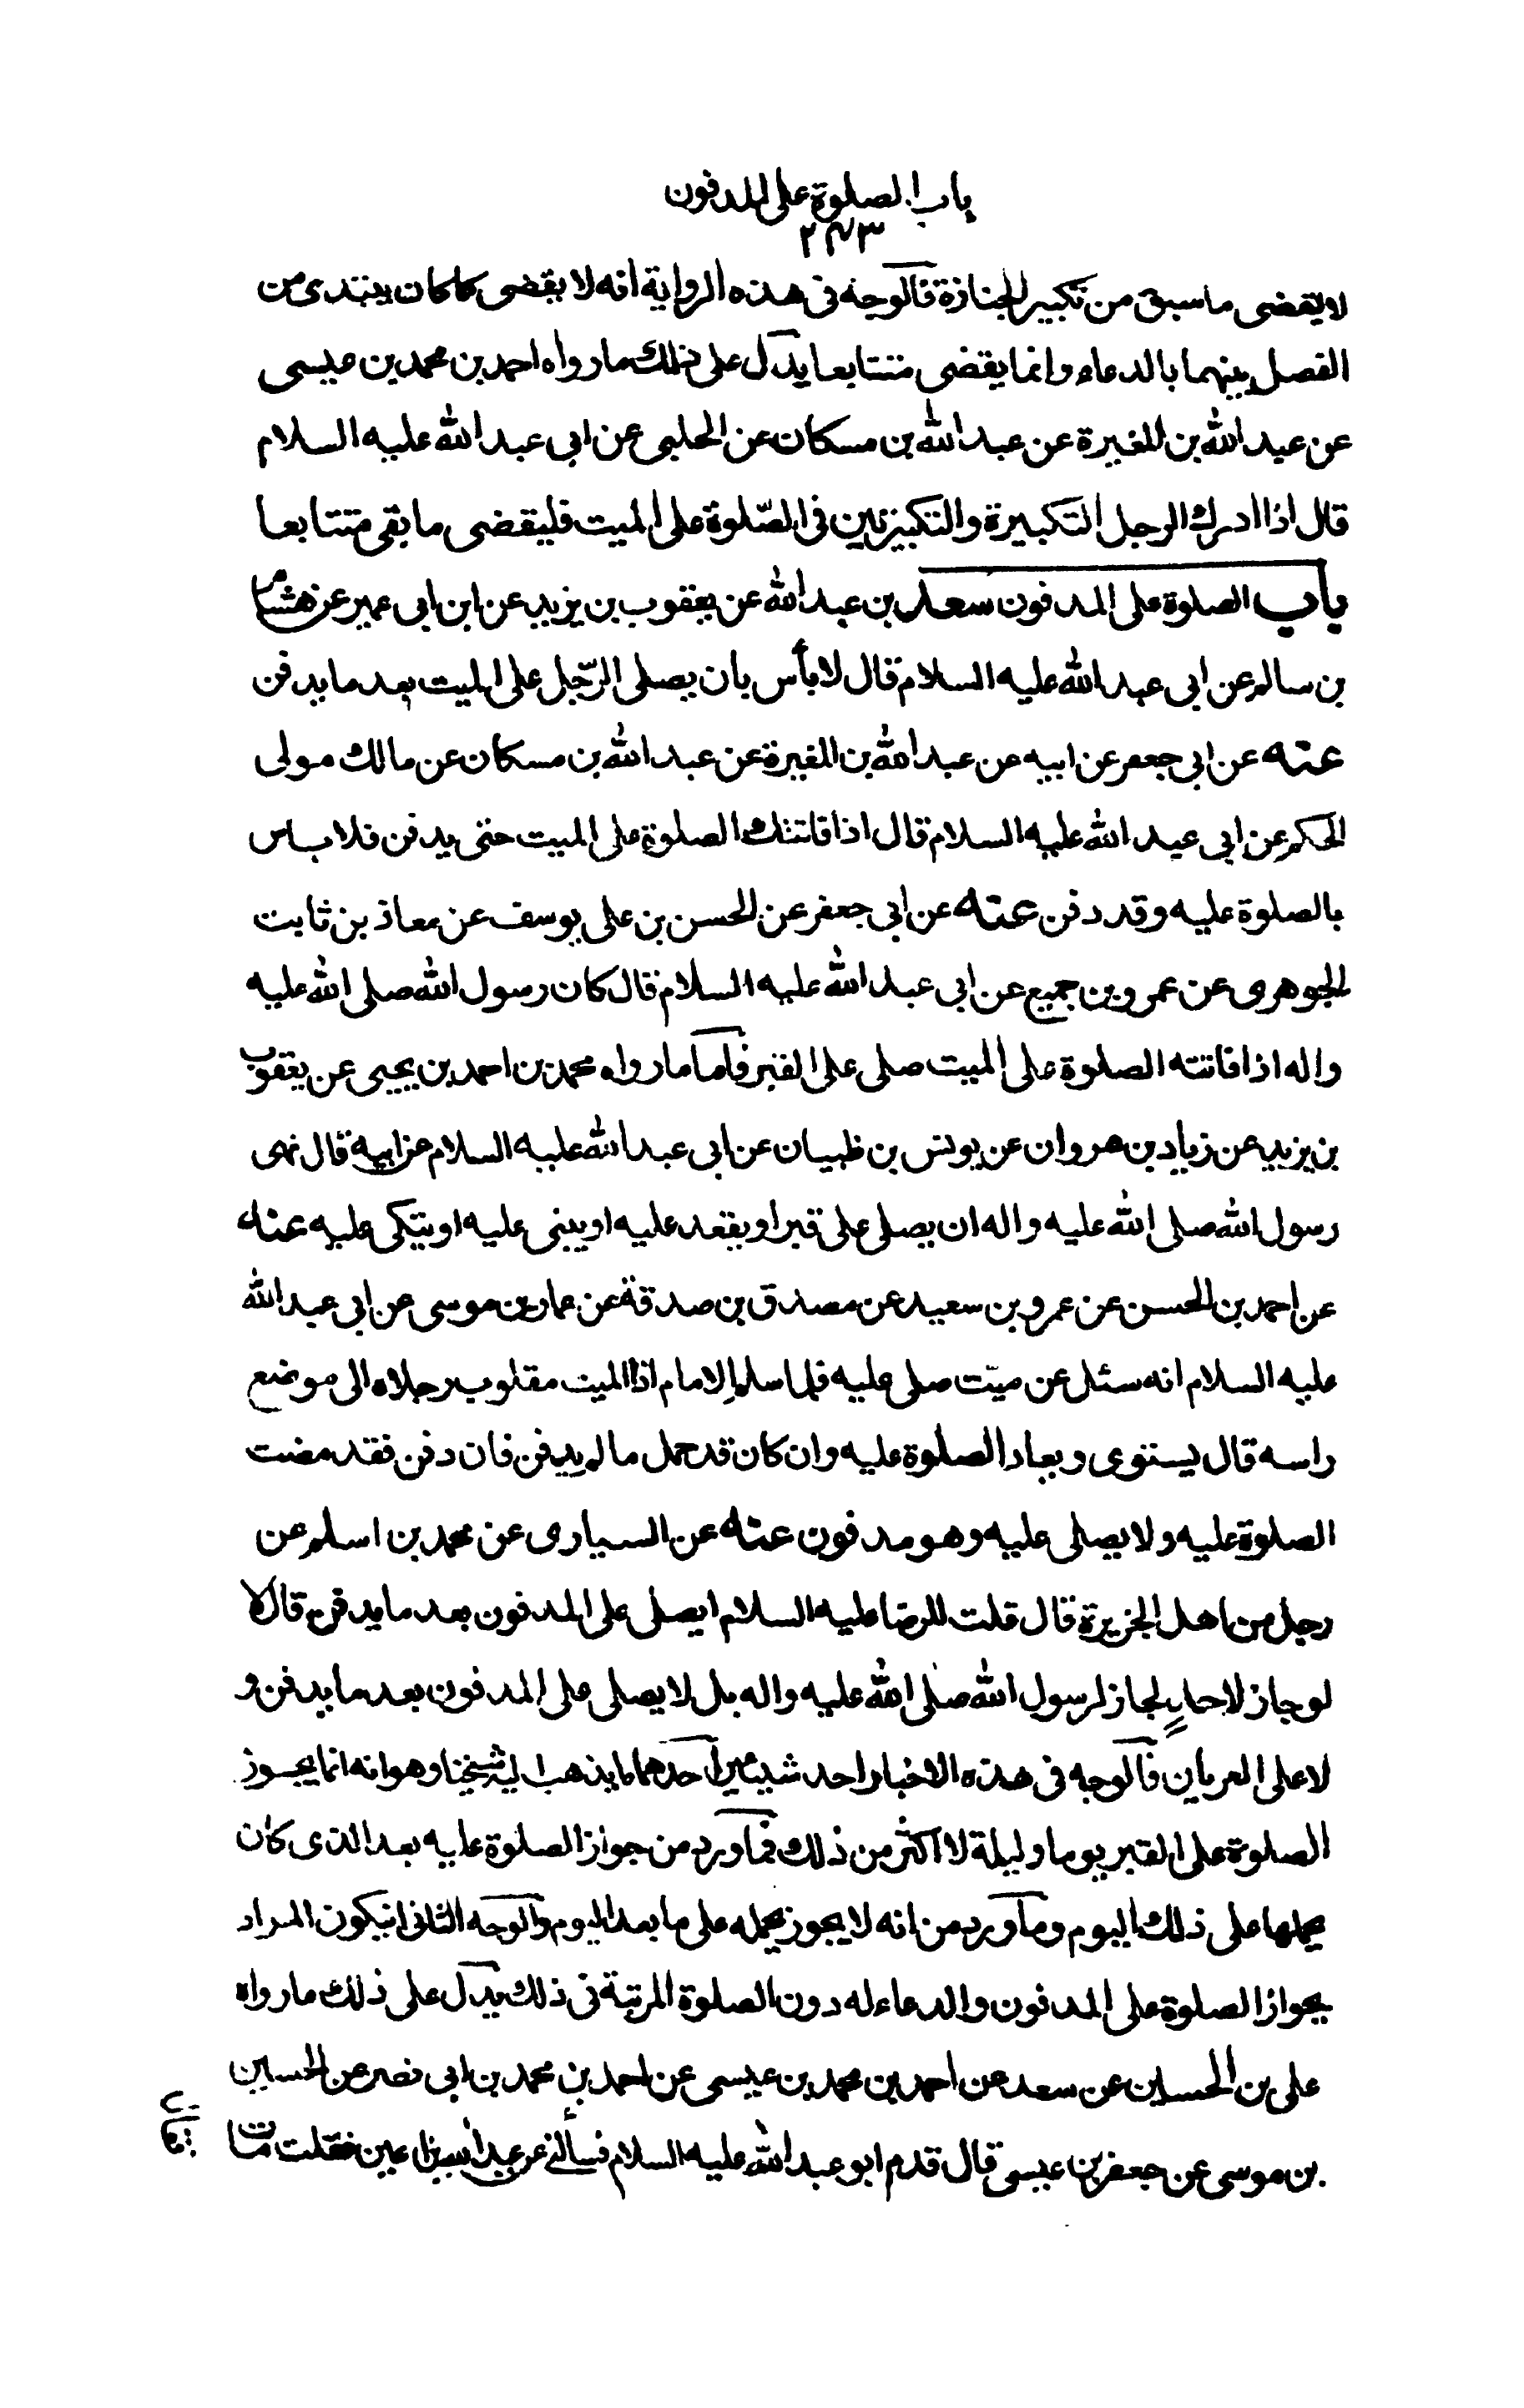 باب الصلوة على المدفون
٢٤٣
لا يقضى ما سبق من تكبير الجنازة فالوجه فى هذه الرواية انه لا يقضى كما كان يبتدى من
الفصل بينهما بالدعاء وانما يقضى متتابعا يدل على ذلك ما رواه احمد بن محمد بن عيسى
عن عبد الله بن المغيرة عن عبد الله بن مسكان عن الحلبى عن ابى عبد الله عليه السلام
قال اذا ادرك الرجل التكبيرة والتكبيرتين فى الصّلوة على الميت فليقضى ما بقى متتابعا
باب الصلوة على المدفون سعد بن عبد الله عن يعقوب بن يزيد عن ابن ابى عمير عن هشام
بن سالم عن ابى عبد الله عليه السلام قال لا بأس بان يصلى الرّجل على الميت بعد ما يدفن
عنه عن ابى جعفر عن ابيه عن عبد الله بن المغيرة عن عبد الله بن مسكان عن مالك مولى
الحكم عن ابى عبد الله عليه السلام قال اذا فاتتك الصلوة على الميت حتى يدفن فلا باس
بالصلوة عليه وقد دفن عنه عن ابى جعفر عن الحسن بن على يوسف عن معاذ بن ثابت
الجوهرى عن عمرو بن جميع عن ابى عبد الله عليه السلام قال كان رسول الله صلى الله عليه
واله اذا فاتته الصلوة على الميت صلى على القبر فاما ما رواه محمد بن احمد بن يحيى عن يعقوب
بن يزيد عن زياد بن مروان عن يونس بن ظبيان عن ابى عبد الله عليه السلام عن ابيه قال نهى
رسول الله صلى الله عليه واله ان يصلى على قبر او يقعد عليه او يبنى عليه او يتكى عليه عنه
عن احمد بن الحسن عن عمرو بن سعيد عن مصدق بن صدقة عن عمار بن موسى عن ابى عبد الله
عليه السلام انه سئل عن ميّت صلى عليه فلما سلم الامام اذا الميت مقلوب رجلاه الى موضع
راسه قال يستوى ويعاد الصلوة عليه وان كان قد حمل ما لم يدفن فان دفن فقد مضت
الصلوة عليه ولا يصلى عليه وهو مدفون عنه عن السيارى عن محمد بن اسلم عن
رجل من اهل الجزيرة قال قلت للرضا عليه السلام ايصلى على المدفون بعد ما يدفن قال لا
لو جاز لاحد لجاز لرسول الله صلى الله عليه واله بل لا يصلى على المدفون بعد ما يدفن و
لا على العريان فالوجه فى هذه الاخبار احد شيئين احدهما ما يذهب اليه شيخنا وهو انه انما يجوز
الصلوة على القبر يوما وليلة لا اكثر من ذلك فما ورد من جواز الصلوة عليه بعد الذى كان
يحملها على ذلك اليوم وما ورد من انه لا يجوز يحمله على ما بعد اليوم والوجه الثانى ان يكون المراد
بجواز الصلوة على المدفون والدعاء له دون الصلوة المرتبة فى ذلك يدل على ذلك ما رواه
على بن الحسين عن سعد عن احمد بن محمد بن عيسى عن احمد بن محمد بن ابى نصر عن الحسين
بن موسى عن جعفر بن عيسى قال قدم ابو عبد الله عليه السلام فسألنى عن عبد الله بن اعين فقلت مات